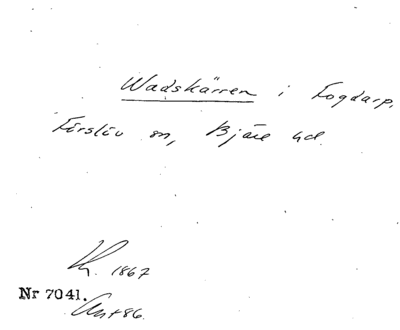 Wadskärren i Fogdarp,
Förslöv sn, Bjäre hd.
1867
Nr 7041.